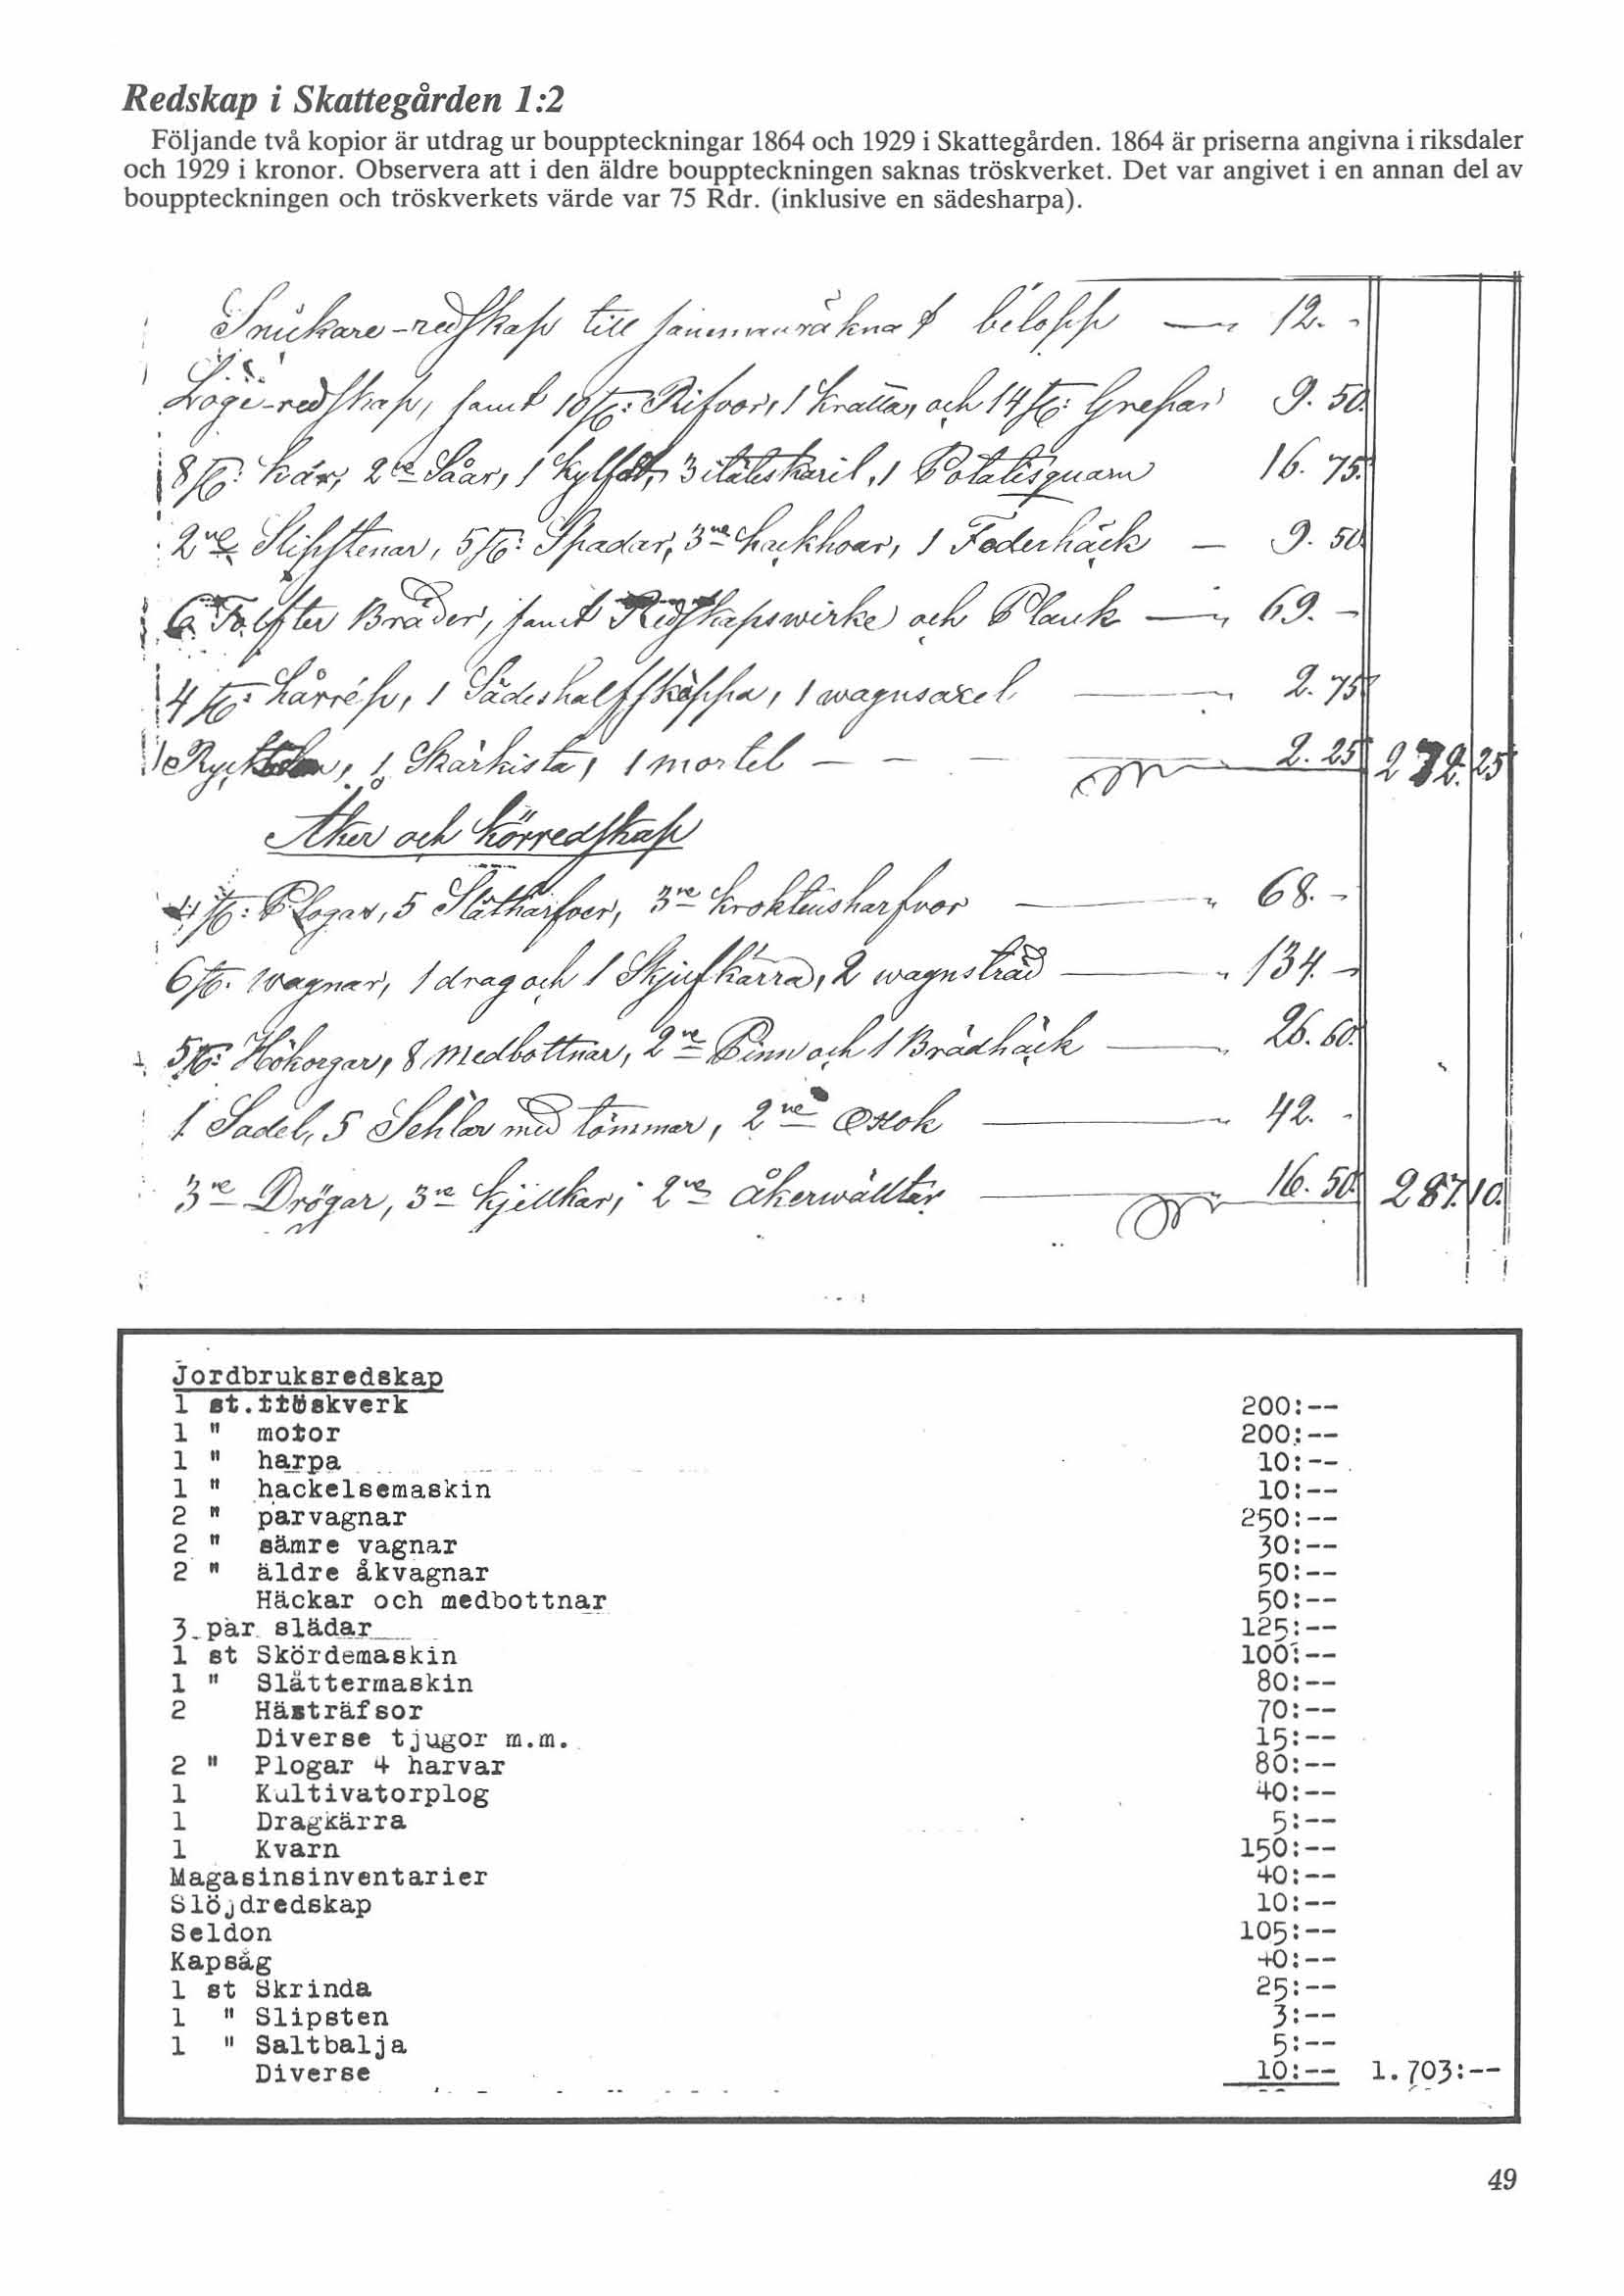 Redskap i Skattegården 1:2
Följande två kopior är utdrag ur bouppteckningar 1864 och 1929 i Skattegården. 1864 är priserna angivna i riksdaler
och 1929 i kronor. Observera att i den äldre bouppteckningen saknas tröskverket. Det var angivet i en annan del av
bouppteckningen och tröskverkets värde var 75 Rdr. (inklusive en sädesharpa).
Snickare-redskap till sammanräknadt belopp — " 12. -
Loge-redskap, samt 10 st: Rifvor, 1 kratta, och 14 st: Grepar 9. 50.
8 st: kar, 2ne Såar, 1 kylfat, 3 karil, 1 Potatisquarn 16. 75.
2ne Slipstenar, 5 st: Spadar, 3ne hackhoar, 1 Foderhäck — 9. 50
6 Tolfter Bräder, samt Redskapswirke och Plank — " 69. -
4 st: hårrép, 1 Sädeshalfskäppa, 1 wagnsaxel — " 2. 75
1 1 Skärkista, 1 mortel — 2. 25 272. 25
Åker och Körredskap
4 st: Plogar, 5 Slätharfver, 3ne kroktinsharfvor — " 68. -
6 st. wagnar, 1 drag och 1 Skjufkärra, 2 wagnsträd — " 134. -
5 st: Hökorgar, 8 medbottnar, 2ne Pinn och 1 Brädhäck — " 26. 60.
1 Sadel, 5 Sehlar med tömmar, 2ne Oxok — " 42. -
3ne Drögar, 3ne kjelkar, 2ne åkerwältar — " 16. 50. 287. 10.
Jordbruksredskap
1 st.ttöskverk 200:--
1 " motor 200:--
1 " harpa 10:--
1 " hackelsemaskin 10:--
2 " parvagnar 250:--
2 " sämre vagnar 30:--
2 " äldre åkvagnar 50:--
Häckar och medbottnar 50:--
3 par slädar 125:--
1 st Skördemaskin 100:--
1 " Slättermaskin 80:--
2 Hästräfsor 70:--
Diverse tjugor m.m. 15:--
2 " Plogar 4 harvar 80:--
1 Kultivatorplog 40:--
1 Dragkärra 5:--
1 Kvarn 150:--
Magasinsinventarier 40:--
Slöjdredskap 10:--
Seldon 105:--
Kapsåg 40:--
1 st Skrinda 25:--
1 " Slipsten 3:--
1 " Saltbalja 5:--
Diverse 10:-- 1.703:--
49